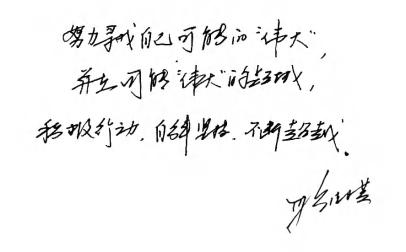 努力寻找自己可能的“伟大”,
并在可能“伟大”的领域,
积极行动,自律坚持,不断超越。